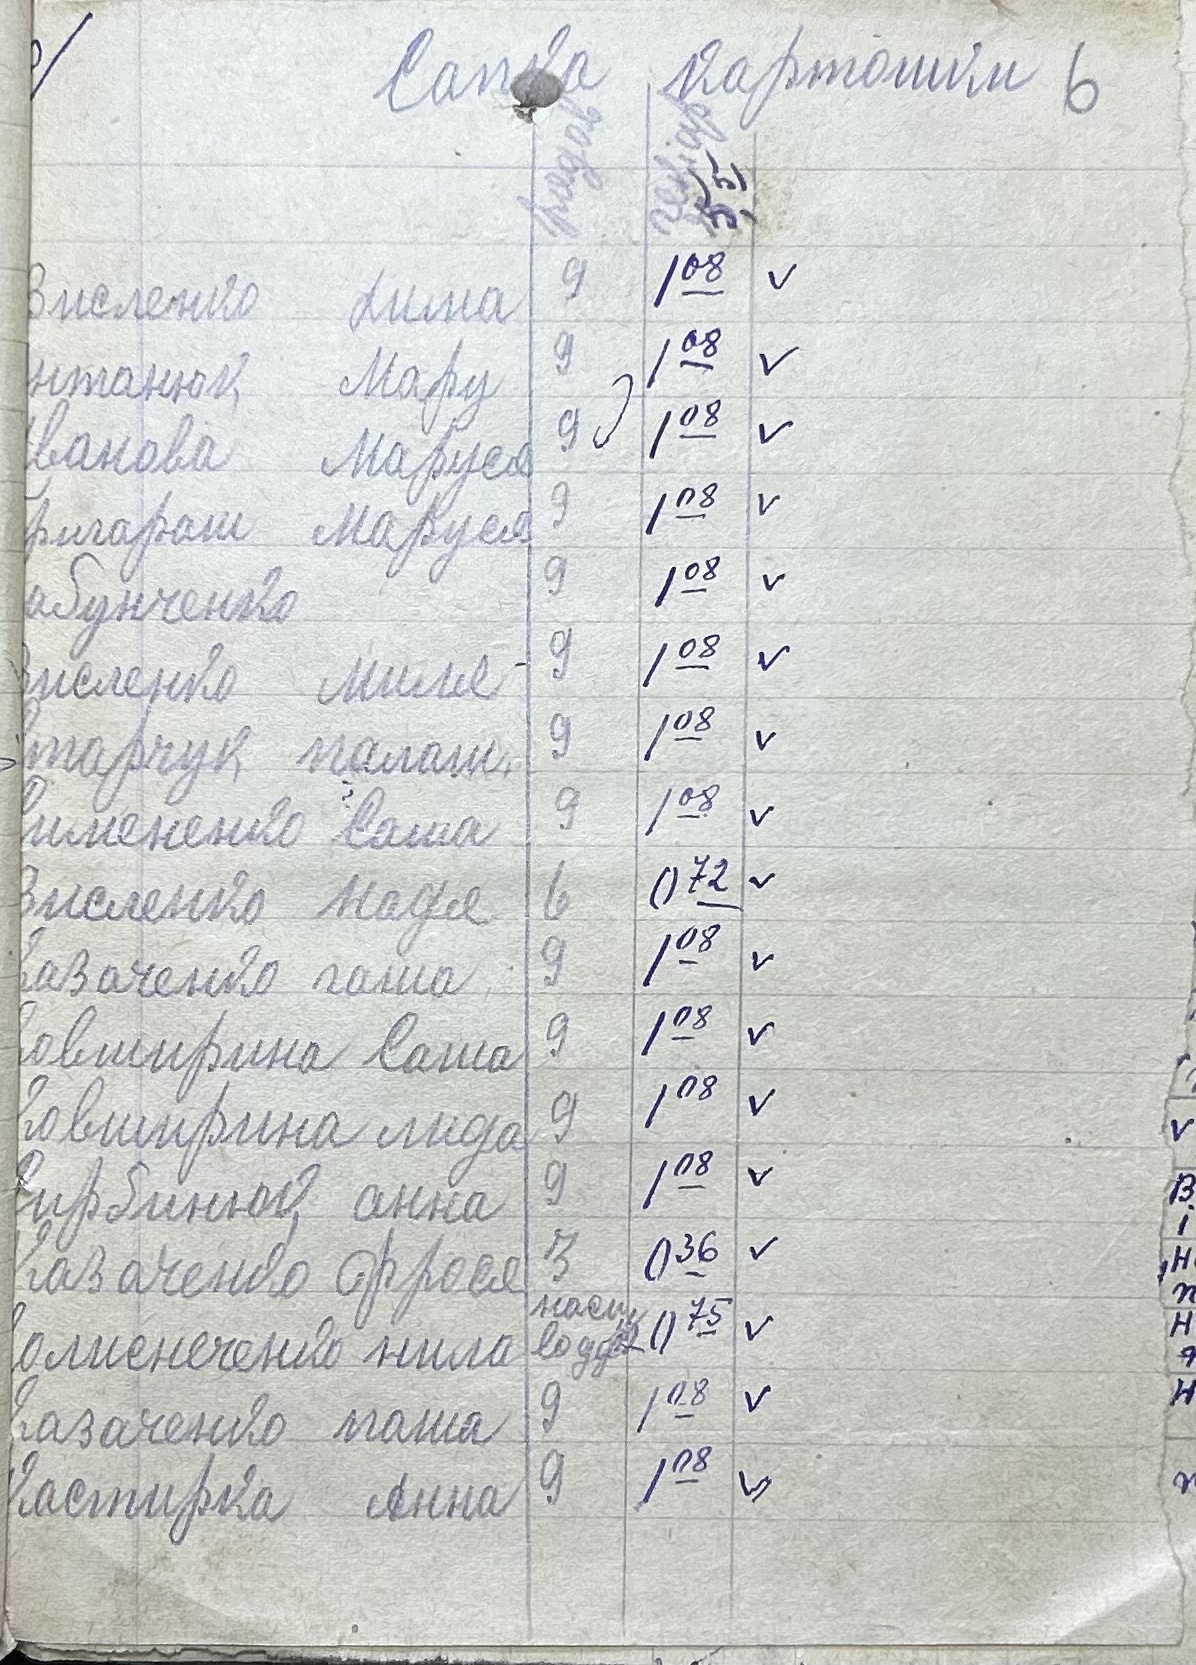 Сапка картошки 6
рядов
Зисленко Дима 9 1 08 v
нтанюк Мару 9 1 08 v
Иванова Маруся 9 1 08 v
Григараш Маруся 9 1 08 v
абунченко 9 1 08 v
Зисленко Миля 9 1 08 v
Старчук палаш. 9 1 08 v
Симененко Саша 9 1 08 v
Зисленко Надя 6 0 72 v
Казаченко паша 9 1 08 v
Ковширина Саша 9 1 08 v
Ковширина лида 9 1 08 v
Сирбинюк анна 9 1 08 v
Казаченко Фрося 3 0 36 v
нила 0 75 v
Казаченко паша 9 1 08 v
Кастирка Анна 9 1 08 v